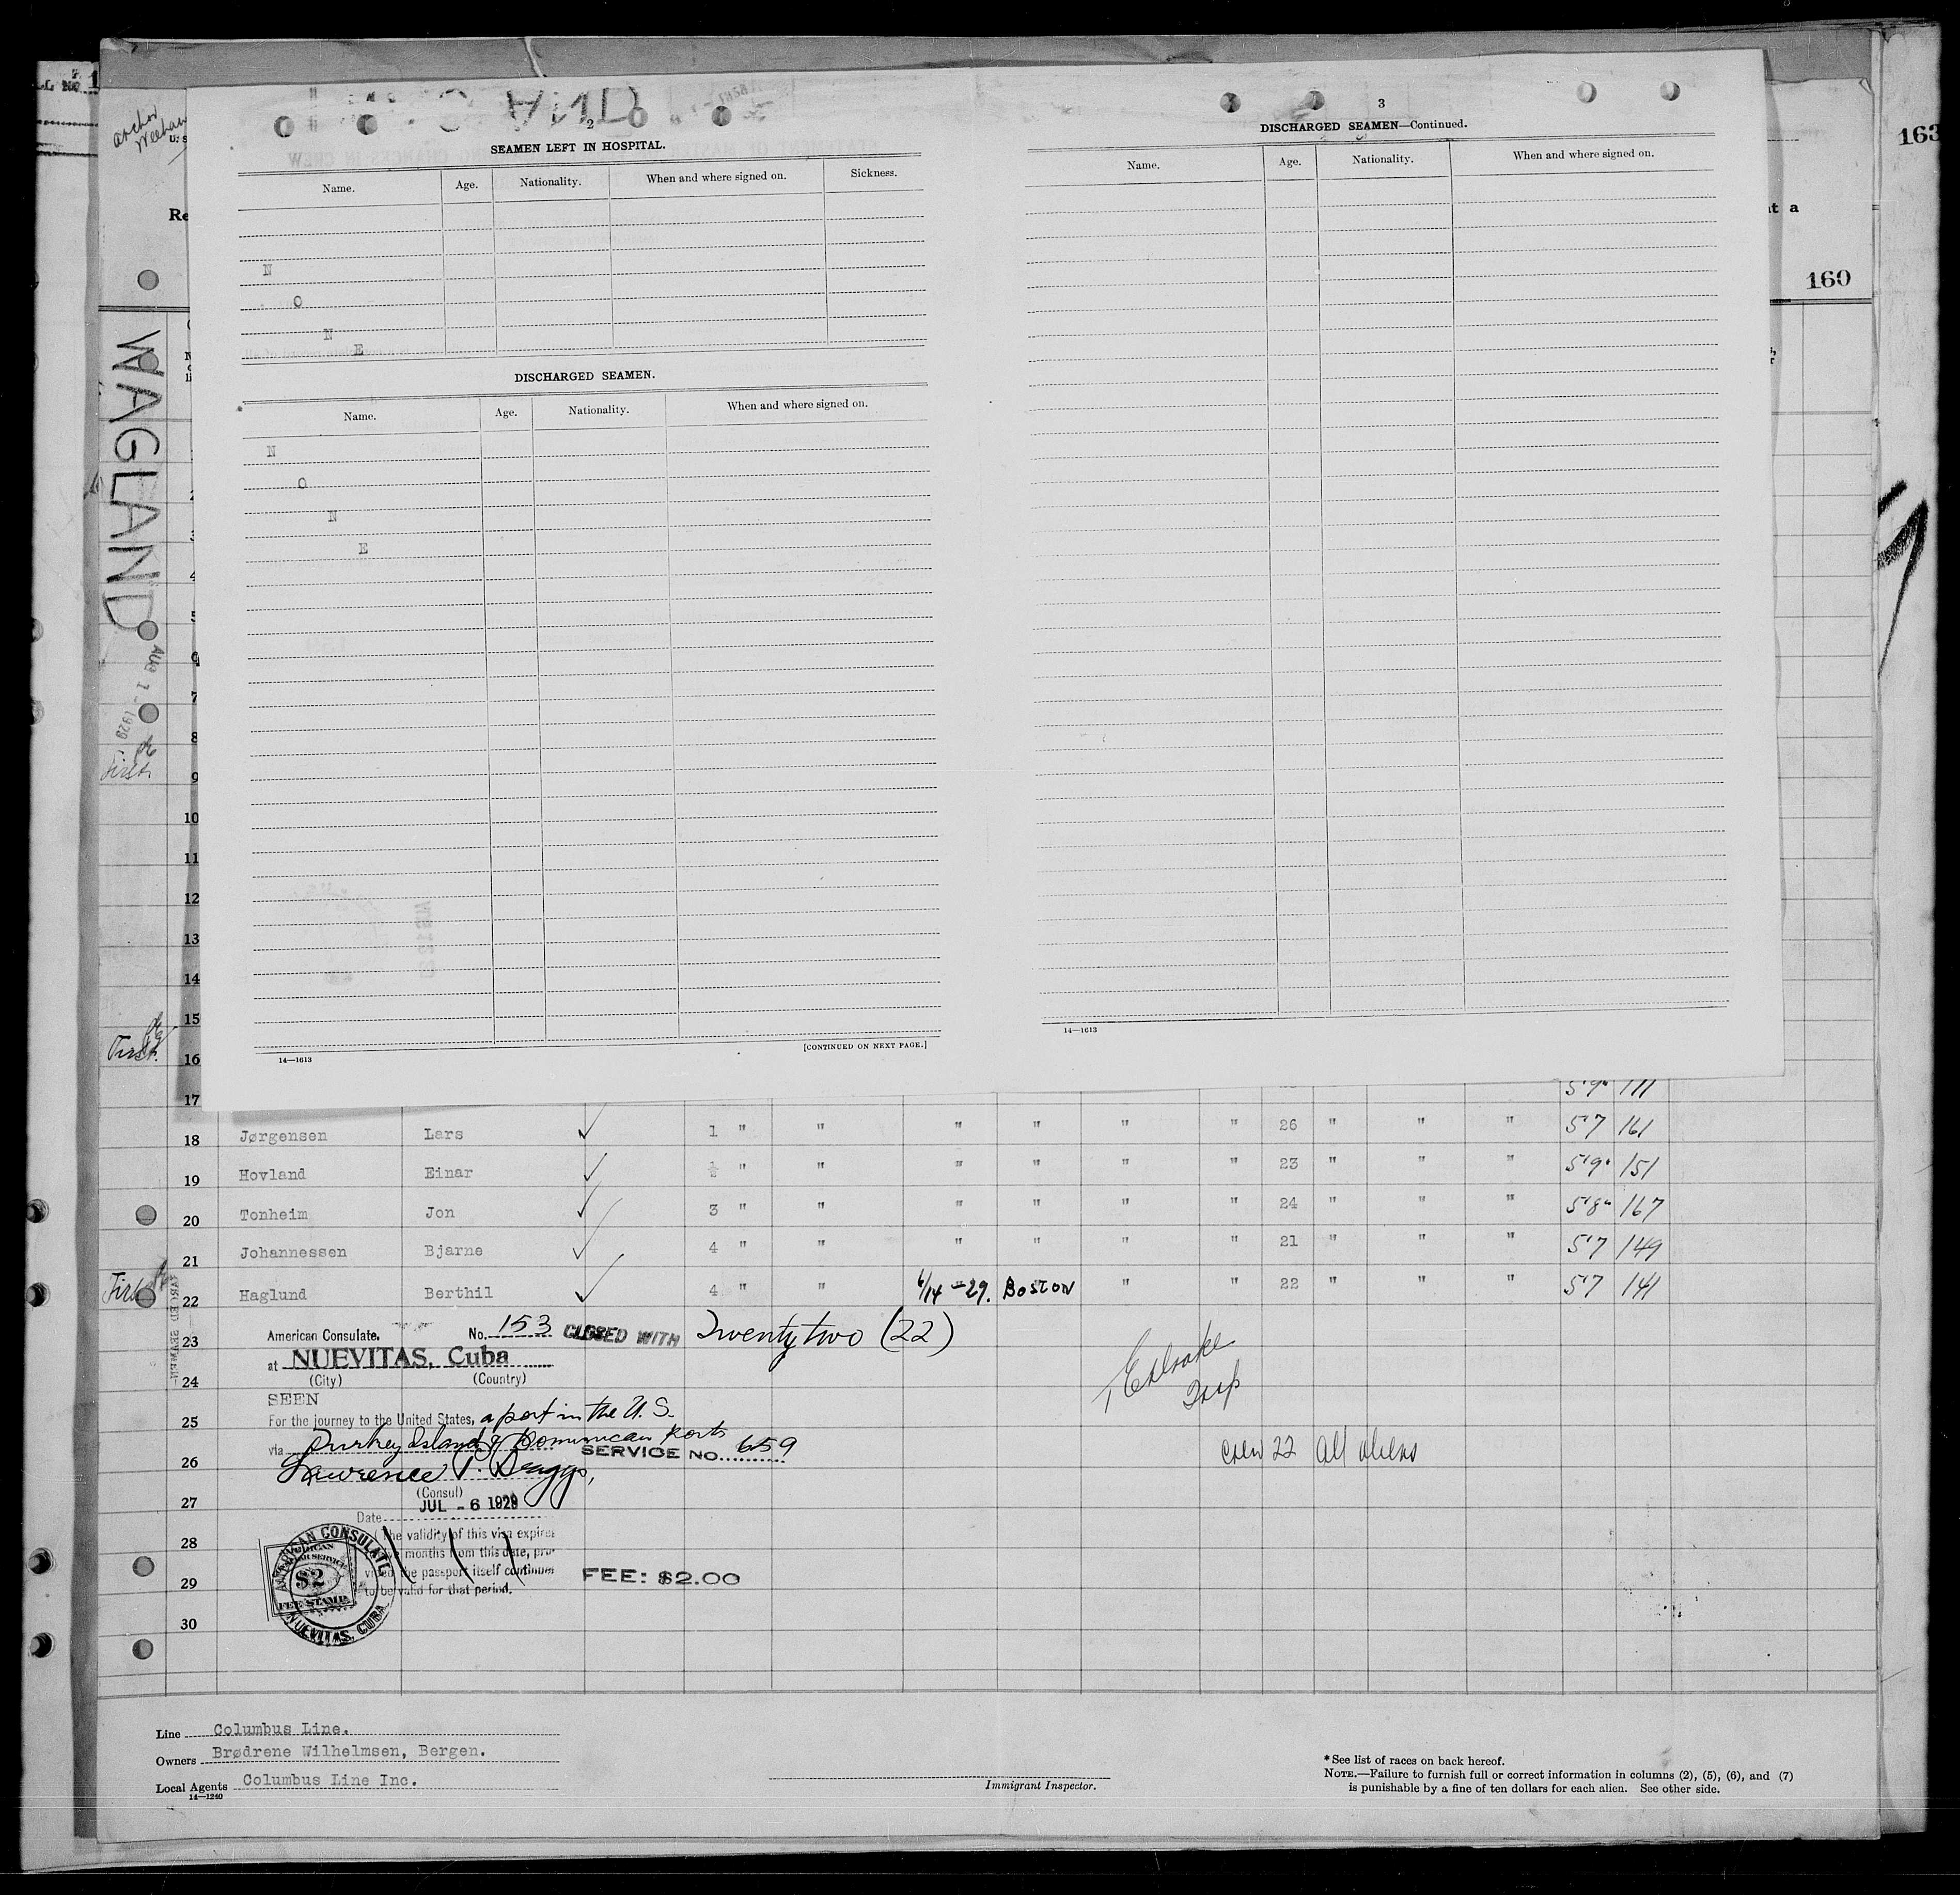 163
160
WAGLAND
AUG 1 - 1929
2
SEAMEN LEFT IN HOSPITAL.
Name. Age. Nationality. When and where signed on. Sickness.
N
O
N
E
DISCHARGED SEAMEN.
Name. Age. Nationality. When and where signed on.
N
O
N
E
14—1613 [CONTINUED ON NEXT PAGE.]
3
DISCHARGED SEAMEN—Continued.
Name. Age. Nationality. When and where signed on.
14—1613
Re
at a
1
2
3
4
5
6
7
8
First
9
10
11
12
13
14
15
First.
16
17 5'9" 171
18 Jørgensen Lars ✓ 1 " " " " " " 26 " " " 5'7 161
19 Hovland Einar ✓ ½ " " " " " " 23 " " " 5'9" 151
20 Tonheim Jon ✓ 3 " " " " " " 24 " " " 5'8" 167
21 Johannessen Bjarne ✓ 4 " " " " " " 21 " " " 5'7 149
22 Haglund Berthil ✓ 4 " " 6/14-29. BOSTON " " 22 " " " 5'7 141
23
24
25
26
27
28
29
30
American Consulate. No. 153 CLOSED WITH Twenty two (22)
at NUEVITAS, Cuba
(City) (Country)
SEEN
For the journey to the United States, a port in the U.S.
via Turkey Island & Dominican Ports
SERVICE NO. 659
(Consul)
JUL - 6 1929
Date
The validity of this visa expires
months from this date, pro-
vided the passport itself continues
to be valid for that period.
AMERICAN CONSULATE
NUEVITAS, CUBA
$2
FEE STAMP
FEE: $2.00
Insp
Crew 22 All aliens
Line Columbus Line.
Owners Brødrene Wilhelmsen, Bergen.
Local Agents Columbus Line Inc.
14—1240
Immigrant Inspector.
* See list of races on back hereof.
NOTE.—Failure to furnish full or correct information in columns (2), (5), (6), and (7)
is punishable by a fine of ten dollars for each alien. See other side.